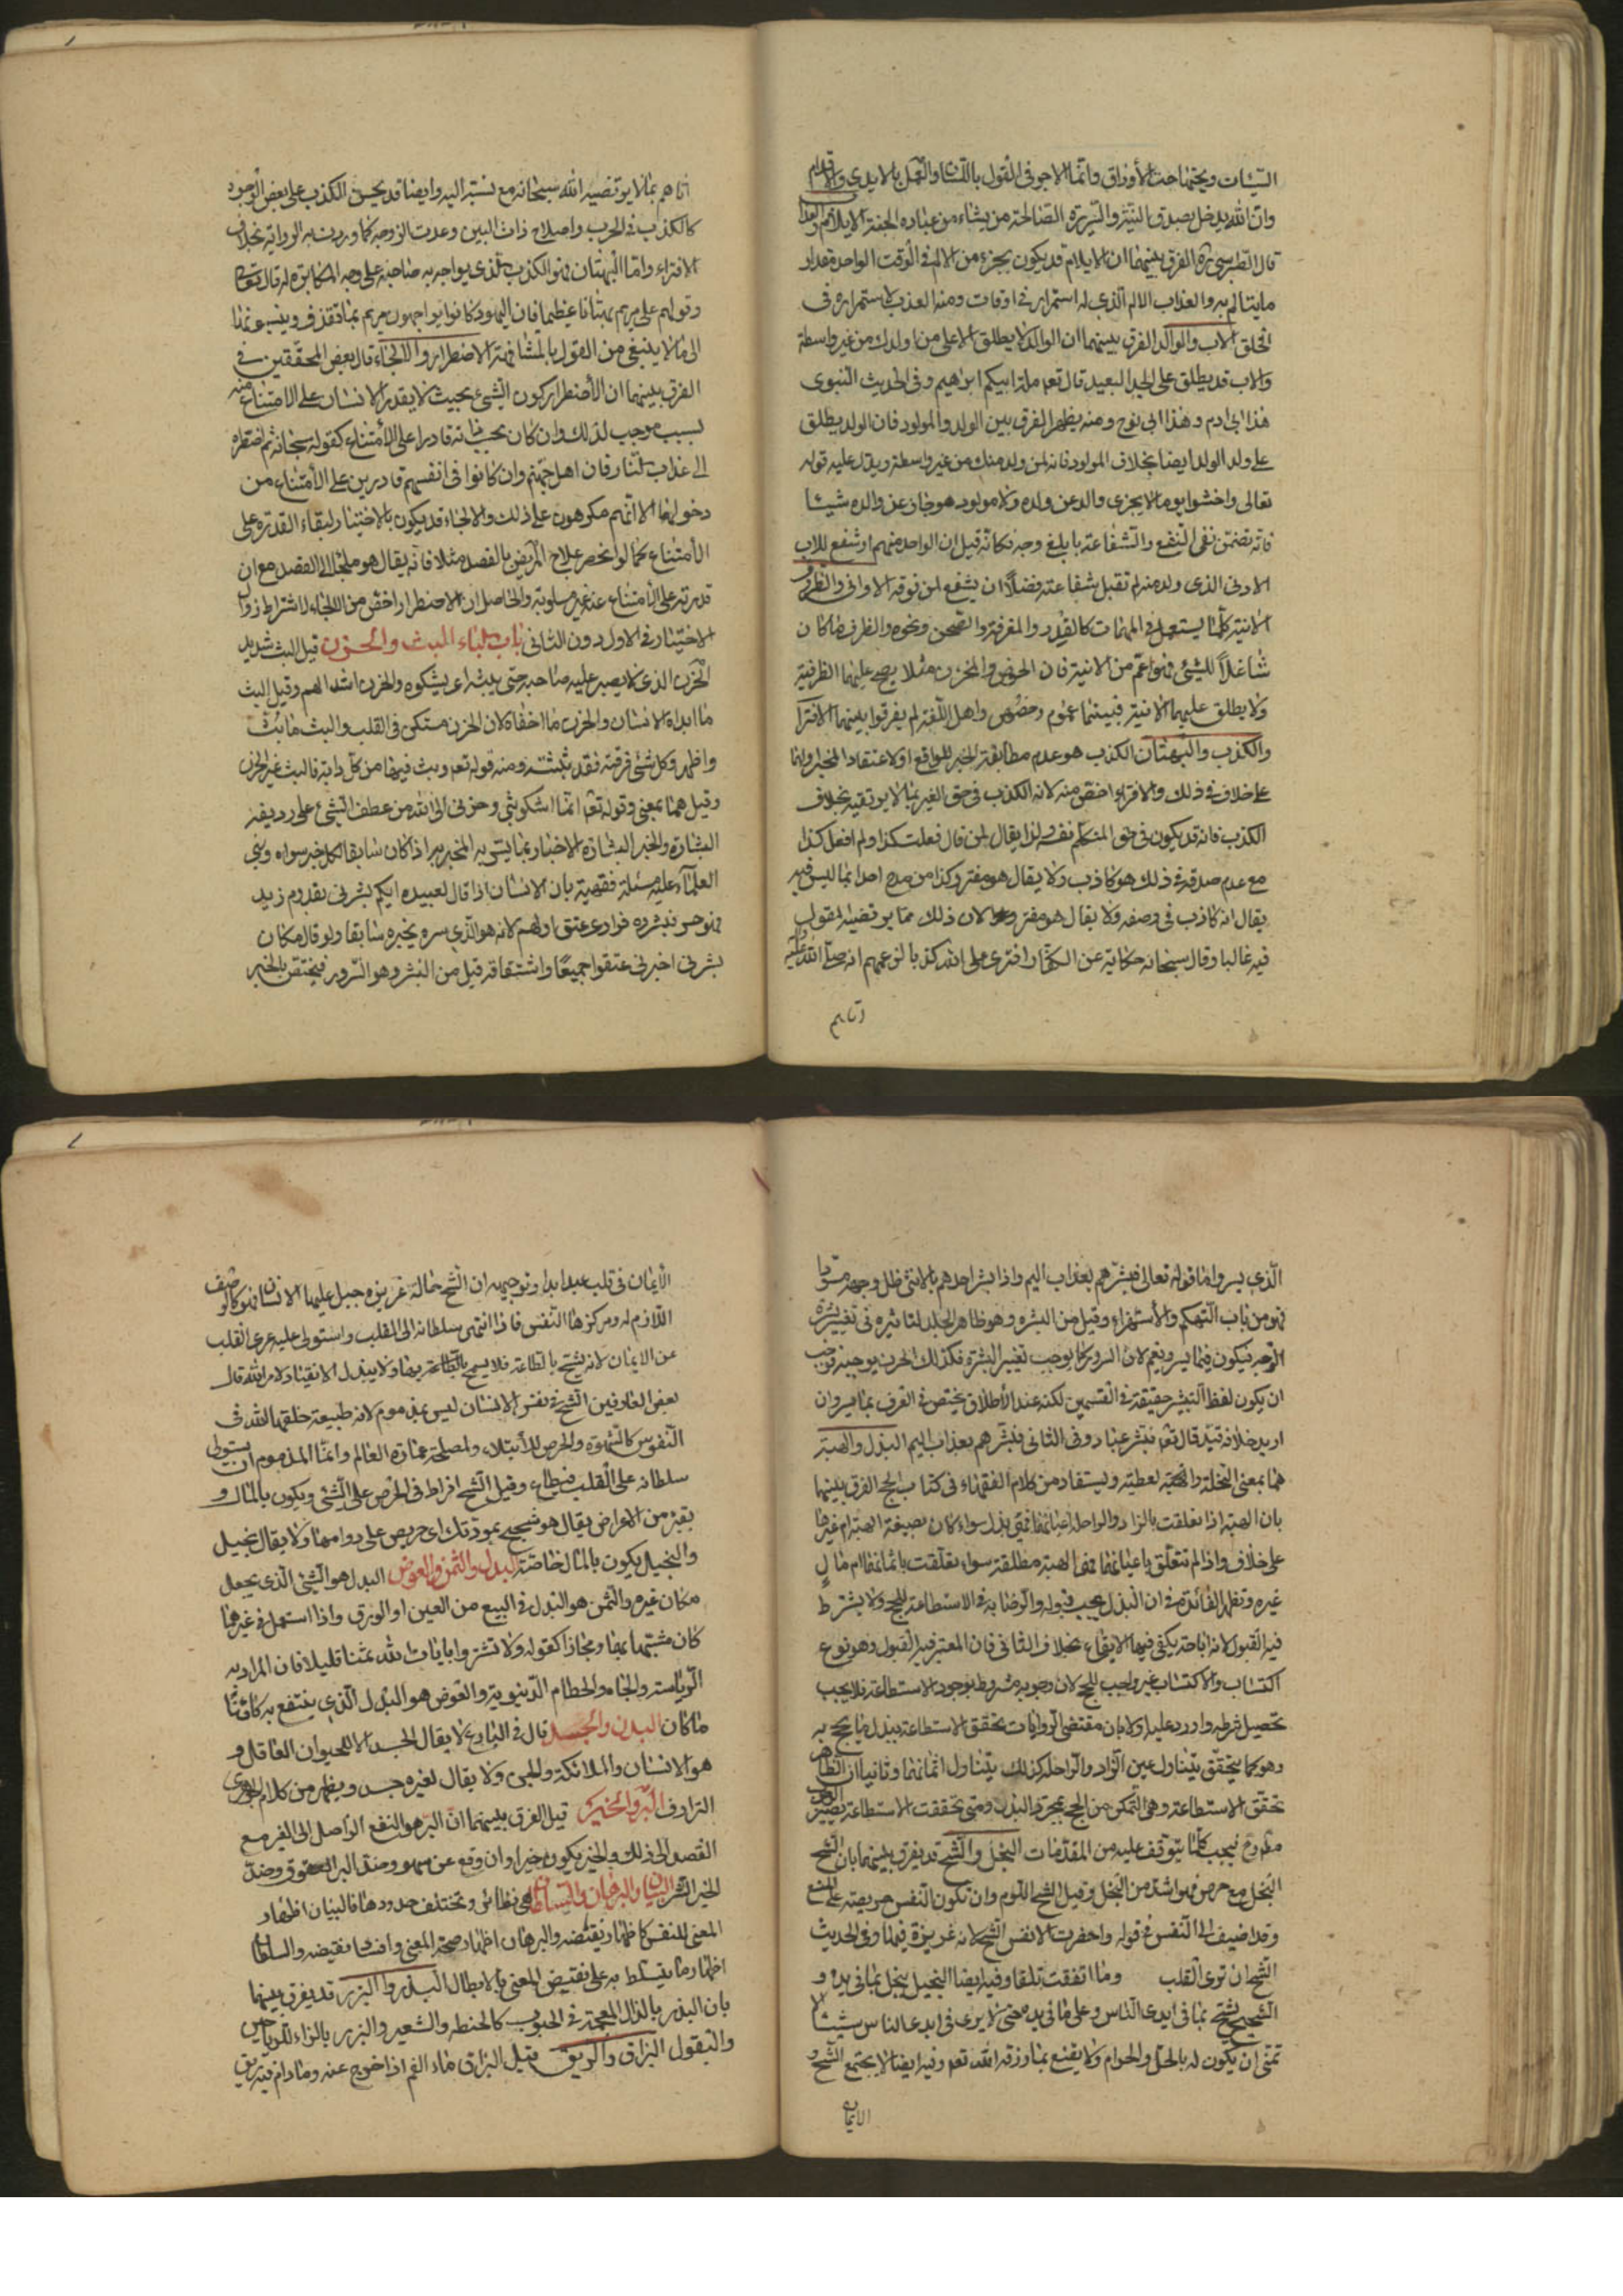 السيئات ويحتهما حت الأوراق وانما الاجر في القول باللسان والعمل بالايدي والاقدام
وان الله يدخل بصدق النية والسريرة الصالحة من يشاء من عباده الجنة الايلام والعذاب
قال الطبرسي ره الفرق بينهما ان الايلام قد يكون بجزء من الالم في الوقت الواحد مقدار
ما يتالم به والعذاب الالم الذي له استمرار في اوقات ومنه العذب لاستمراره في
الحلق الاب والوالد الفرق بينهما ان الوالد لا يطلق الا على من اولدك من غير واسطة
والاب قد يطلق على الجد البعيد قال تعه ملة ابيكم ابرهيم وفي الحديث النبوي
هذا ابي ادم وهذا ابي نوح ومنه يظهر الفرق بين الولد والمولود فان الولد يطلق
على ولد الولد ايضا بخلاف المولود فانه لمن ولد منك من غير واسطة ويدل عليه قوله
تعالى واخشوا يوما لا يجزى والد عن ولده ولا مولود هو جاز عن والده شيئا
فانه تضمن نفى النفع والشفاعة بابلغ وجه فكانه قيل ان الواحد منهم لو شفع للاب
الادنى الذي ولد منه لم تقبل شفاعته فضلا ان يشفع لمن فوقه الاواني والظروف
الانية كلما يستعمل في المهمات كالقدر والمغرفة والصحن ونحوه والظرف ما كان
شاغلا للشئ فهو اعم من الانية فان الحوض والمخزن مثلا يصح عليهما الظرفية
ولا يطلق عليهما الانية فبينهما عموم وخصوص واهل اللغة لم يفرقوا بينهما الافترا
والكذب والبهتان الكذب هو عدم مطابقة الخبر للواقع او لاعتقاد المخبر لهما
على خلاف في ذلك والافتراء اخص منه لانه الكذب في حق الغير بما لا يرتضيه بخلاف
الكذب فانه قد يكون في حق المتكلم نفسه ولذا يقال لمن قال فعلت كذا ولم افعل كذا
مع عدم صدقه في ذلك هو كاذب ولا يقال هو مفتر وكذا من مدح احدا بما ليس فيه
يقال انه كاذب في وصفه ولا يقال هو مفتر لان في ذلك مما يرتضيه المقول
فيه غالبا وقال سبحانه حكاية عن الكفار افترى على الله كذبا لزعمهم انه صلى الله عليه
اتاهم
اتاهم بما لا يرتضيه الله سبحانه مع نسبته اليه وايضا قد يحسن الكذب على بعض الوجوه
كالكذب في الحرب واصلاح ذات البين وعدة الزوجه كما وردت به الرواية بخلاف
الافتراء واما البهتان فهو الكذب الذي يواجه به صاحبه على وجه المكابرة له قال تعالى
وقولهم على مريم بهتانا عظيما فان اليهود كانوا يواجهون مريم بما تقذف وينسبونها
الى ما لا ينبغي من القول بالمشافهة الاضطرار والالجاء قال بعض المحققين في
الفرق بينهما ان الأضطرار كون الشئ بحيث لا يقدر الانسان على الامتناع منه
لسبب موجب لذلك وان كان بحسب ذاته قادرا على الأمتناع كقوله سبحانه ثم اضطره
الى عذاب النار فان اهل جهنم وان كانوا في انفسهم قادرين على الأمتناع من
دخولها الا انهم مكرهون على ذلك والالجاء قد يكون بالاختيار لبقاء القدرة على
الأمتناع كما لو انحصر علاج المريض بالفصد مثلا فانه يقال هو ملجا الى الفصد مع ان
قدرته على الأمتناع عنه غير مسلوبة والحاصل ان الاضطرار اخص من الالجاء لاشتراط زوال
الاختيار في الاول دون الثاني باب الباء البث والحزن قيل البث شديد
الحزن الذي لا يصبر عليه صاحبه حتى يبثه اي يشكوه والحزن اشد الهم وقيل البث
ما ابداه الانسان والحزن ما اخفاه لان الحزن مستكن في القلب والبث ما بث
واظهر وكل شئ فرقته فقد بثثته ومنه قوله تعه وبث فيها من كل دابة فالبث غير الحزن
وقيل هما بمعنى وقوله تعا انما اشكو بثي وحزني الى الله من عطف الشئ على رديفه
البشارة والخبر البشارة الاخبار بما يسر به المخبر به اذا كان سابقا لكل خبر سواه وبنى
العلماء عليه مسئلة فقهية بان الانسان اذا قال لعبيده ايكم بشرني بقدوم زيد
فهو حر فبشروه فرادى عتق اولهم لانه هو الذي سره بخبره سابقا ولو قال مكان
بشرني اخبرني عتقوا جميعا واشتقاقه قيل من البشر وهو السرور فيختص بالخبر
الذي يسر واما قوله تعالى فبشرهم بعذاب اليم واذا بشر احدهم بالانثى ظل وجهه مسودا
فهو من باب التهكم والأستهزاء وقيل من البشره وهو ظاهر الجلد لتاثيره في تغيير بشرة
الوجه فيكون فيما يسر ويغم لان السرور كما يوجب تغيير البشرة فكذلك الحزن يوجبه فوجب
ان يكون لفظ التبشير حقيقة في القسمين لكنه عند الأطلاق يختص في العرف بما يسر وان
اريد خلافه قيد قال تعا فبشر عباد وفي الثاني فبشرهم بعذاب اليم البذل والهبة
هما بمعنى النحلة والهبة لعطية ويستفاد من كلام الفقهاء في كتاب الحج الفرق بينهما
بان الهبة اذا تعلقت بالزاد والراحلة اعيانهما فهي بذل سواء كان بصيغة الهبة ام غيرها
على خلاف واذا لم تتعلق باعيانهما فهي الهبة مطلقة سواء تعلقت باثمانهما ام مال
غيره وتظهر الفائدة في ان البذل يجب قبوله والرضا به في الاستطاعة للحج ولا يشترط
فيه القبول لانه اباحة يكفي فيها الايقاع بخلاف الثاني فان المعتبر فيه القبول وهو نوع
اكتساب والاكتساب غير واجب للحج لان وجوبه مشروط بوجود الاستطاعة فلا يجب
تحصيل شرطه واورد عليه اولا بان مقتضى الروايات تحقق الاستطاعة ببذل ما يحج به
وهو كما يتحقق يتناول عين الزاد والراحلة كذلك يتناول اثمانهما وثانيا ان الظاهر
تحقق الاستطاعة وهي التمكن من الحج بمجرد البذل ومتى تحققت الاستطاعة يصير الوجوب
فيجب كلما يتوقف عليه من المقدمات البخل والشح قد يفرق بينهما بان الشح
البخل مع حرص فهو اشد من البخل وقيل الشح اللوم وان تكون النفس حريصة على المنع
وقد اضيف الى النفس في قوله واحضرت الانفس الشح لانه غريزة فيها وفي الحديث
الشح ان ترى القلب وما انفقت تلفا وفيه ايضا البخيل يبخل بما في يده و
الشحيح يشح بما في ايدي الناس وعلى ما في يده حتى لا يرى في ايدي الناس شيئا الا
تمنى ان يكون له بالحل والحرام ولا يقنع بما رزقه الله تعه وفيه ايضا لا يجتمع الشح و
الايمان
الأيمان في قلب عبد ابدا وتوجيهه ان الشح حالة غريزة جبل عليها الانسان فهو كالوصف
اللازم له ومركزها النفس فاذا انتهى سلطانه الى القلب واستولى عليه عرى القلب
عن الايمان لانه يشح بالطاعة فلا يسمح بها ولا يبذل الانقياد لامر الله قال
بعض العارفين الشح في نفس الانسان ليس بمذموم لانه طبيعة خلقها الله في
النفوس كالشهوة والحرص للأبتلاء ولمصلحة عمارة العالم وانما المذموم ان يستولي
سلطانه على القلب فيطاع وقيل الشح افراط في الحرص على الشئ ويكون بالمال و
بغيره من الاعراض يقال هو شحيح بمودتك اي حريص على دوامها ولا يقال بخيل
والبخيل يكون بالمال خاصة البدل والثمن والعوض البدل هو الشئ الذي يجعل
مكان غيره والثمن هو البدل في البيع من العين او الورق واذا استعمل في غيرها
كان مشبها بها ومجازا كقوله ولا تشتروا بايات الله ثمنا قليلا فان المراد به
الرياسة والجاه والحطام الدنيوية والعوض هو البدل الذي ينتفع به كائنا
ما كان البدن والجسد قال في البارع لا يقال الجسد الا للحيوان العاقل و
هو الانسان والملائكة والجن ولا يقال لغيره جسد ويظهر من كلام الجوهري
الترادف البر والخير قيل الفرق بينهما ان البر هو النفع الواصل الى الغير مع
القصد الى ذلك والخير يكون خيرا وان وقع عن سهو وضد البر العقوق وضد
الخير الشر البيان والبرهان والسلطان هي نظائر وتختلف حدودها فالبيان اظهار
المعنى للنفس كاظهار نقيضه والبرهان اظهار صحة المعنى وافساد نقيضه والسلطان
اظهار ما يتسلط به على نقيض المعنى بالابطال البذر والبزر قد يفرق بينهما
بان البذر بالذال المعجمة في الحبوب كالحنطة والشعير والبزر بالزاء للرياحين
والبقول البزاق والريق قيل البزاق ماء الفم اذا خرج عنه وما دام فيه ريق